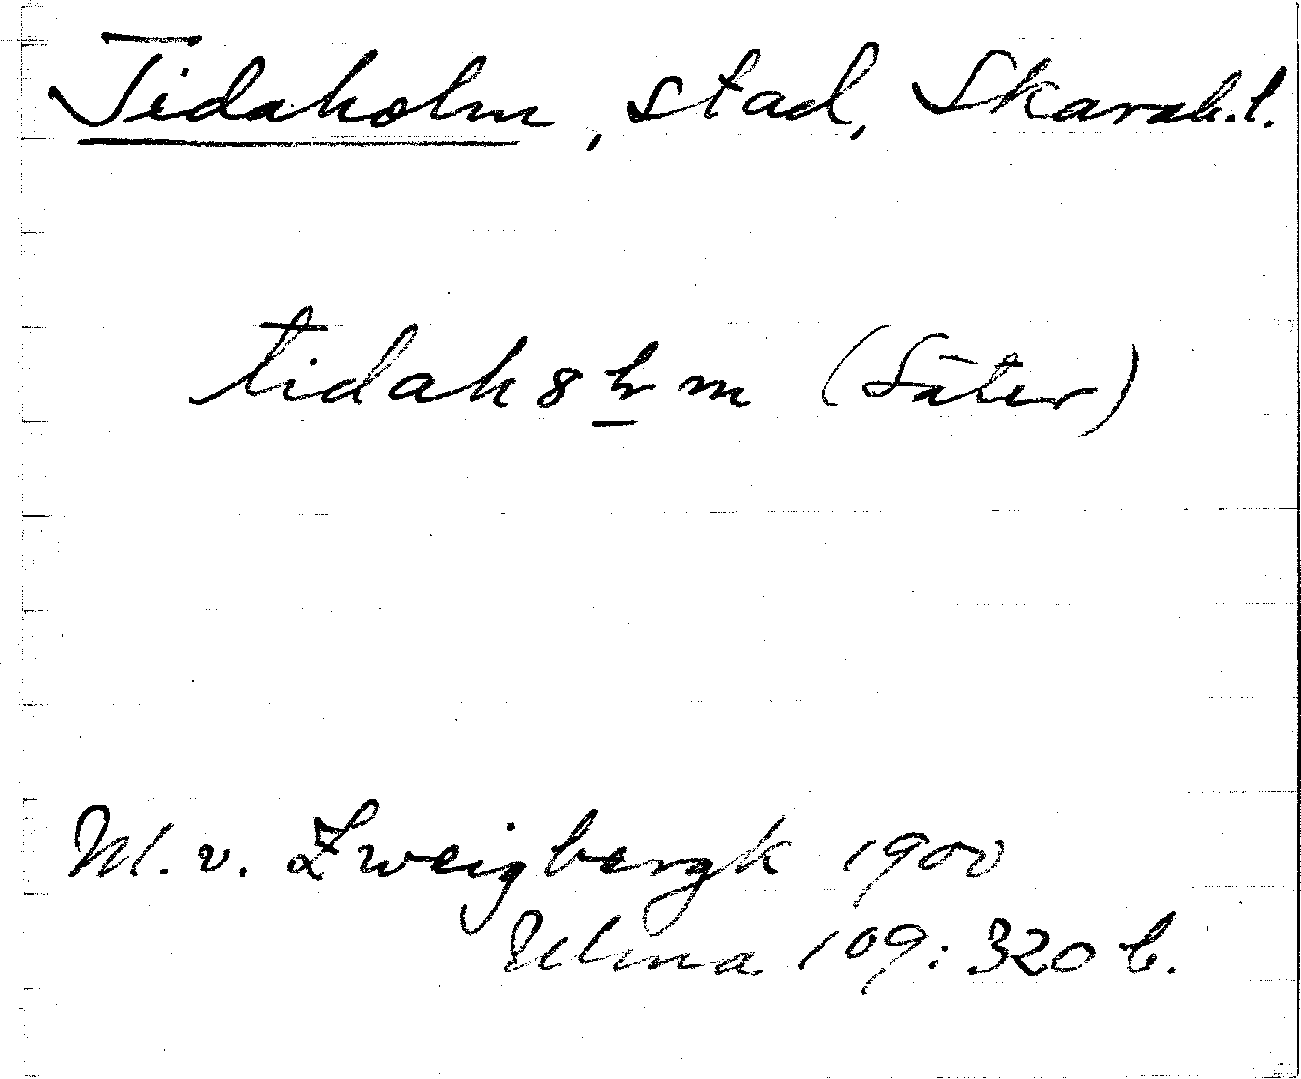 Tidaholm, stad, Skarab.l.
tidah8lm (Säter)
M. v. Zweigbergk 1900
Ulma 109:320 b.